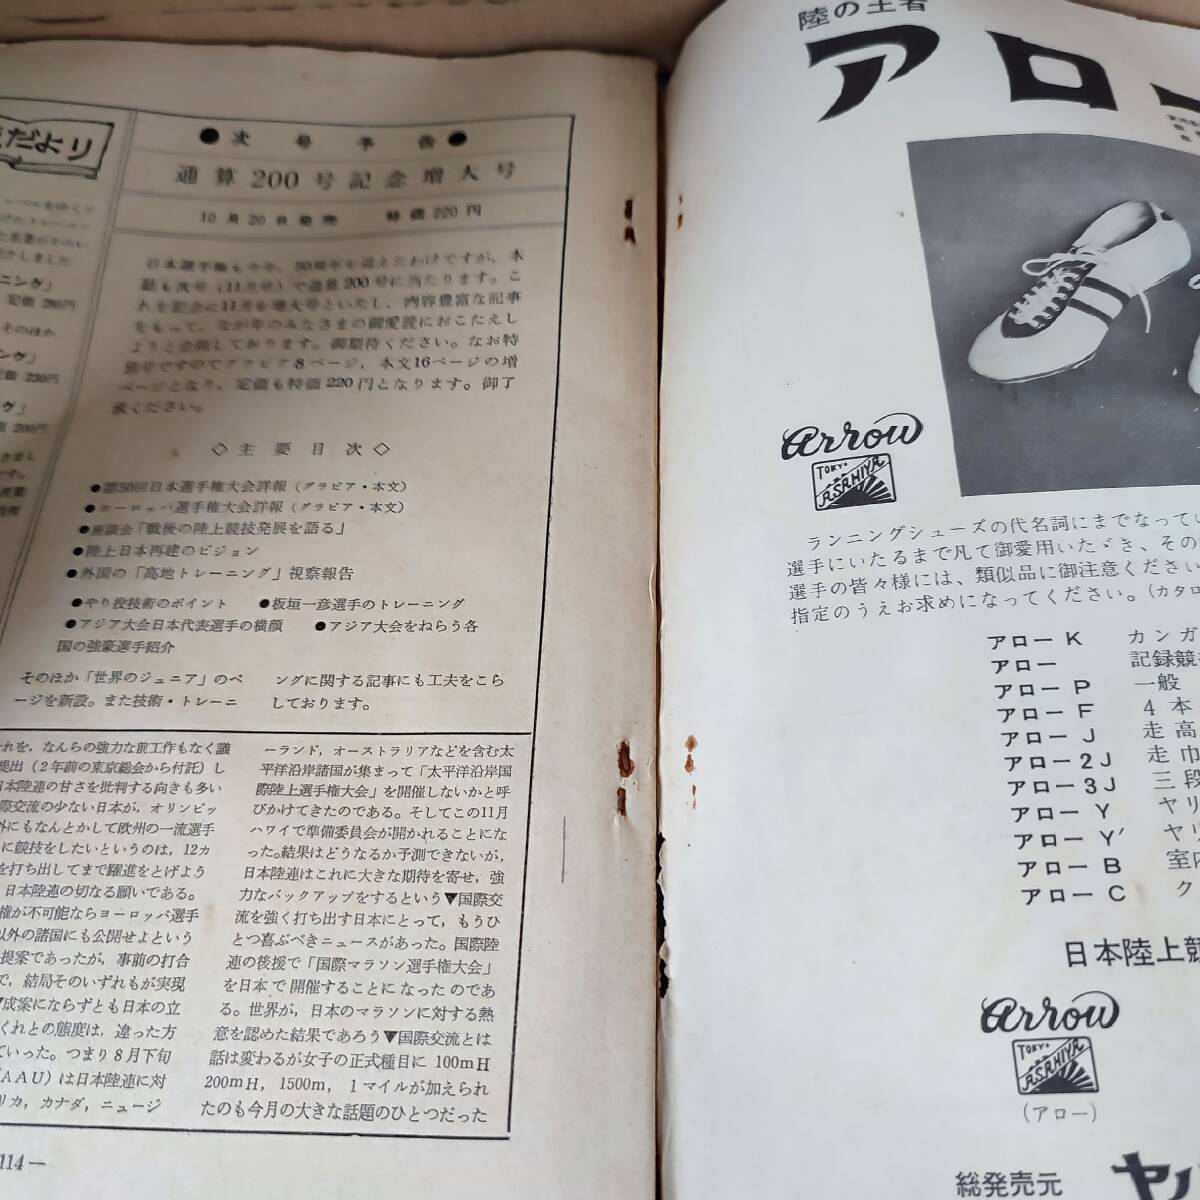 だより
●次号予告●
通算200号記念増大号
10月20日発売 特価220円
日本選手権も今年、50周年を迎えたわけですが、本
誌も次号(11月号)で通算200号に当たります。こ
れを記念に11月を増大号といたし、内容豊富な記事
をもって、なが年のみなさまの御愛読におこたえし
ようと企画しております。御期待ください。なお特
別号ですのでグラビア8ページ、本文16ページの増
ページとなり、定価も特価220円となります。御了
承ください。
◇主要目次◇
●第50回日本選手権大会詳報(グラビア・本文)
●ヨーロッパ選手権大会詳報(グラビア・本文)
●座談会「戦後の陸上競技発展を語る」
●陸上日本再建のビジョン
●外国の「高地トレーニング」視察報告
●やり投技術のポイント ●板垣一彦選手のトレーニング
●アジア大会日本代表選手の横顔 ●アジア大会をねらう各
国の強豪選手紹介
そのほか「世界のジュニア」のペ
ージを新設。また技術・トレーニ
ングに関する記事にも工夫をこら
しております。
それを,なんらの強力な前工作もなく議
提出(2年前の東京総会から付託)し
日本陸連の甘さを批判する向きも多い
際交流の少ない日本が,オリンピッ
外にもなんとかして欧州の一流選手
に競技をしたいというのは,12カ
を打ち出してまで躍進をとげよう
日本陸連の切なる願いである。
権が不可能ならヨーロッパ選手
以外の諸国にも公開せよという
提案であったが,事前の打合
で,結局そのいずれもが実現
▼成案にならずとも日本の立
くれとの態度は,違った方
ていった。つまり8月下旬
AAU)は日本陸連に対
リカ,カナダ,ニュージ
ーランド,オーストラリアなどを含む太
平洋沿岸諸国が集まって「太平洋沿岸国
際陸上選手権大会」を開催しないかと呼
びかけてきたのである。そしてこの11月
ハワイで準備委員会が開かれることにな
った。結果はどうなるか予測できないが,
日本陸連はこれに大きな期待を寄せ,強
力なバックアップをするという▼国際交
流を強く打ち出す日本にとって,もうひ
とつ喜ぶべきニュースがあった。国際陸
連の後援で「国際マラソン選手権大会」
を日本で開催することになったのであ
る。世界が,日本のマラソンに対する熱
意を認めた結果であろう▼国際交流とは
話は変わるが女子の正式種目に 100mH
200mH, 1500m, 1マイルが加えられ
たのも今月の大きな話題のひとつだった
114—
陸の王者
アロー
arrow
TOKYO
A.S.RHIYA
ランニングシューズの代名詞にまでなってい
選手にいたるまで凡て御愛用いたゞき、その
選手の皆々様には、類似品に御注意ください
指定のうえお求めになってください。(カタロ
アロー K カンガ
アロー 記録競
アロー P 一般
アロー F 4本
アロー J 走高
アロー 2J 走巾
アロー 3J 三段
アロー Y ヤリ
アロー Y' ヤリ
アロー B 室内
アロー C ク
日本陸上競
arrow
TOKYO
A.S.RHIYA
(アロー)
総発売元